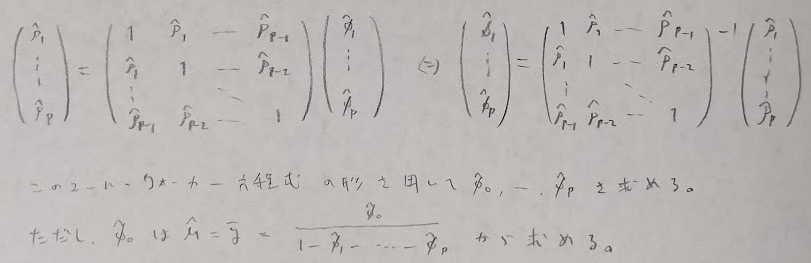 \begin{pmatrix} \hat{\rho}_1 \\ \vdots \\ \hat{\rho}_p \end{pmatrix} = \begin{pmatrix} 1 & \hat{\rho}_1 & \cdots & \hat{\rho}_{p-1} \\ \hat{\rho}_1 & 1 & \cdots & \hat{\rho}_{p-2} \\ \vdots & & \ddots & \\ \hat{\rho}_{p-1} & \hat{\rho}_{p-2} & \cdots & 1 \end{pmatrix} \begin{pmatrix} \hat{\phi}_1 \\ \vdots \\ \hat{\phi}_p \end{pmatrix} \Leftrightarrow \begin{pmatrix} \hat{\phi}_1 \\ \vdots \\ \hat{\phi}_p \end{pmatrix} = \begin{pmatrix} 1 & \hat{\rho}_1 & \cdots & \hat{\rho}_{p-1} \\ \hat{\rho}_1 & 1 & \cdots & \hat{\rho}_{p-2} \\ \vdots & & \ddots & \\ \hat{\rho}_{p-1} & \hat{\rho}_{p-2} & \cdots & 1 \end{pmatrix}^{-1} \begin{pmatrix} \hat{\rho}_1 \\ \vdots \\ \hat{\rho}_p \end{pmatrix}
このユール・ウォーカー方程式の形を用いて \hat{\phi}_0, …, \hat{\phi}_p を求める。
ただし、\hat{\phi}_0 は \hat{\mu} = \bar{y} = \frac{\hat{\phi}_0}{1 - \hat{\phi}_1 - \cdots - \hat{\phi}_p} から求める。